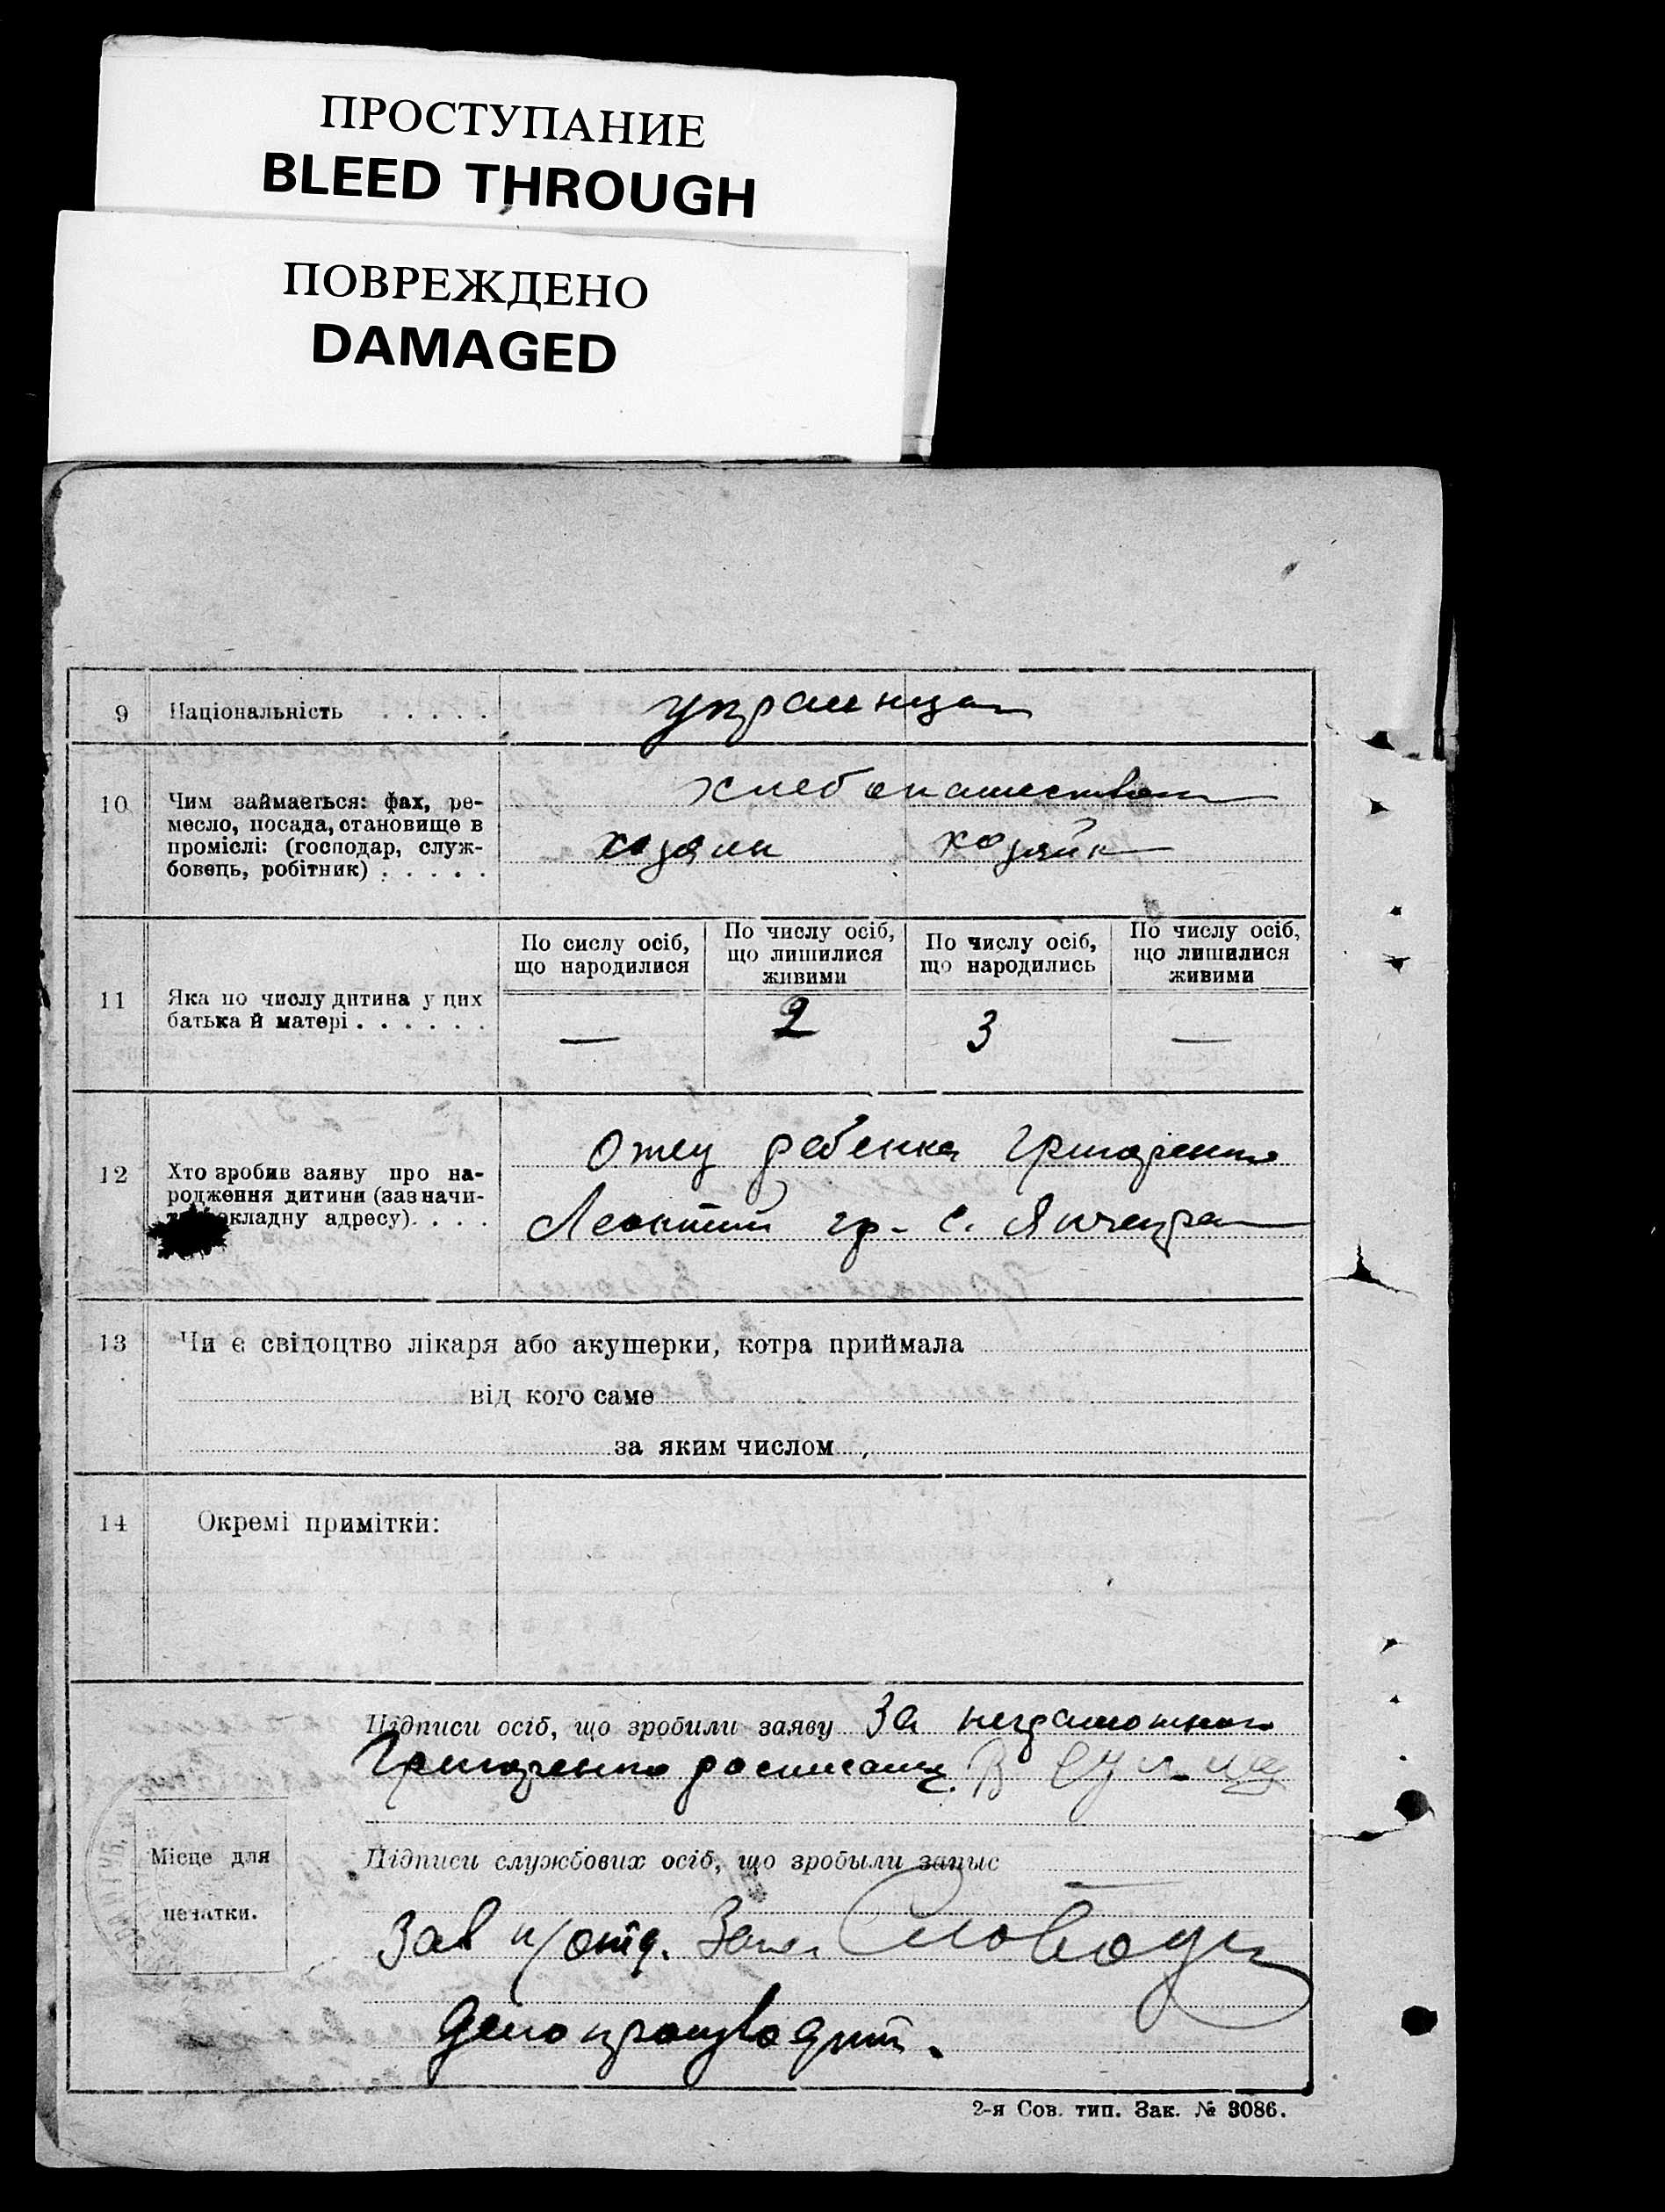 ПРОСТУПАНИЕ
BLEED THROUGH
ПОВРЕЖДЕНО
DAMAGED
9 Національність . . . . . украинцы
10 Чим займається: фах, ре-
месло, посада, становище в
проміслі: (господар, служ-
бовець, робітник) . . . . .
хлебопашеством
хозяин хозяйн
11 Яка по числу дитина у цих
батька й матері . . . . . .
По сислу осіб,
що народилися
По числу осіб,
що лишилися
живими
По числу осіб,
що народились
По числу осіб,
що лишилися
живими
— 2 3 —
12 Хто зробив заяву про на-
родження дитини (зазначи-
кладну адресу). . . .
Отец ребенка
Леонтий гр. с.
13 Чи є свідоцтво лікаря або акушерки, котра приймала
від кого саме
за яким числом
14 Окремі примітки:
Підписи осіб, що зробили заяву За
росписался
Місце для
печатки.
Підписи службових осіб, що зробыли запыс
Зав п/отд. Загс
Делопроизводит.
2-я Сов. тип. Зак. № 3086.